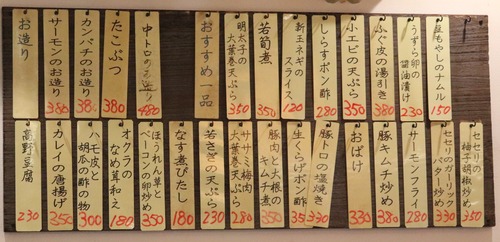 豆もやしのナムル
150
うずら卵の
醤油漬け
230
ふぐ皮の湯引き
380
小エビの天ぷら
350
しらすポン酢
280
新玉ネギの
スライス
120
若筍煮
350
明太子の
大葉巻天ぷら
350
おすすめ一品
中トロのお造り
480
たこぶつ
380
カンパチのお造り
380
サーモンのお造り
380
お造り
セセリの
柚子胡椒炒め
350
セセリのガーリック
バター炒め
330
サーモンフライ
280
豚キムチ炒め
380
おばけ
330
豚トロの塩焼き
330
生くらげポン酢
豚肉と大根の
キムチ煮
350
ササミ梅肉
大葉巻天ぷら
280
若さぎの天ぷら
230
なす煮びたし
180
ほうれん草と
ベーコンの卵炒め
350
オクラの
なめ茸和え
180
ハモ皮と
胡瓜の酢の物
300
カレイの唐揚げ
350
高野豆腐
230